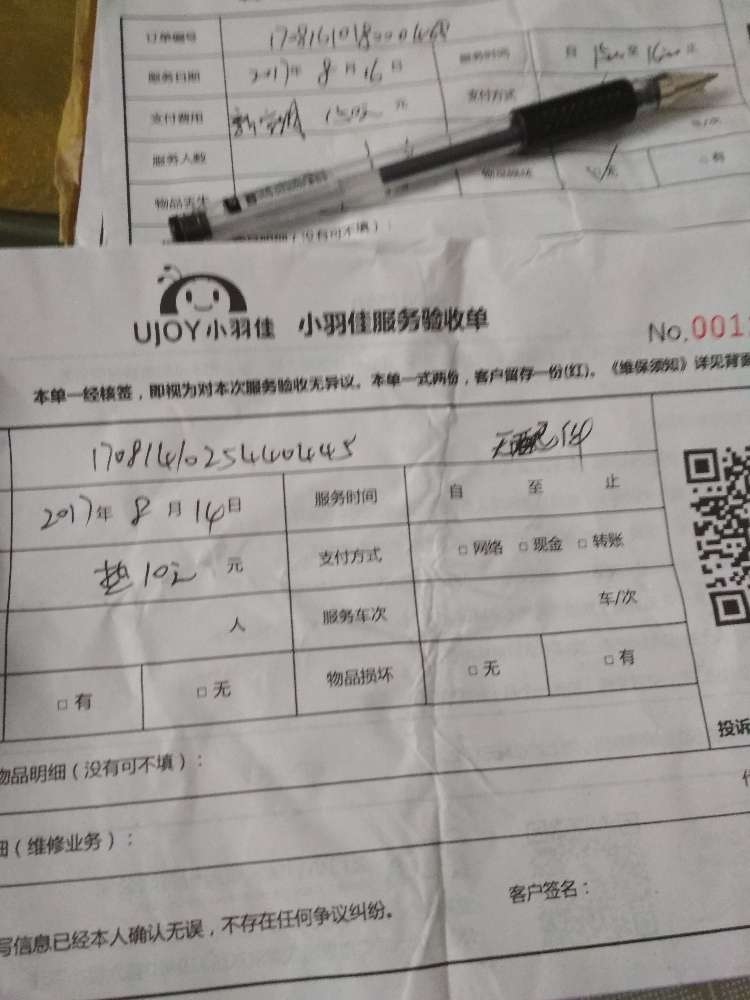 订单编号
服务日期 2017年 8月 16日 服务时间 自 至 止
支付费用 元 支付方式
服务人数
物品丢失 物品损坏 无 有
(没有可不填):
UJOY小羽佳 小羽佳服务验收单
No.001
本单一经核签,即视为对本次服务验收无异议。本单一式两份,客户留存一份(红)。《维保须知》详见背面
17081410254400445
2017年 8月 14日 服务时间 自 至 止
垫10元 元 支付方式 □ 网络 □ 现金 □ 转账
人 服务车次 车/次
□ 有 □ 无 物品损坏 □ 无 □ 有
投诉
物品明细(没有可不填):
细(维修业务):
客户签名:
写信息已经本人确认无误,不存在任何争议纠纷。